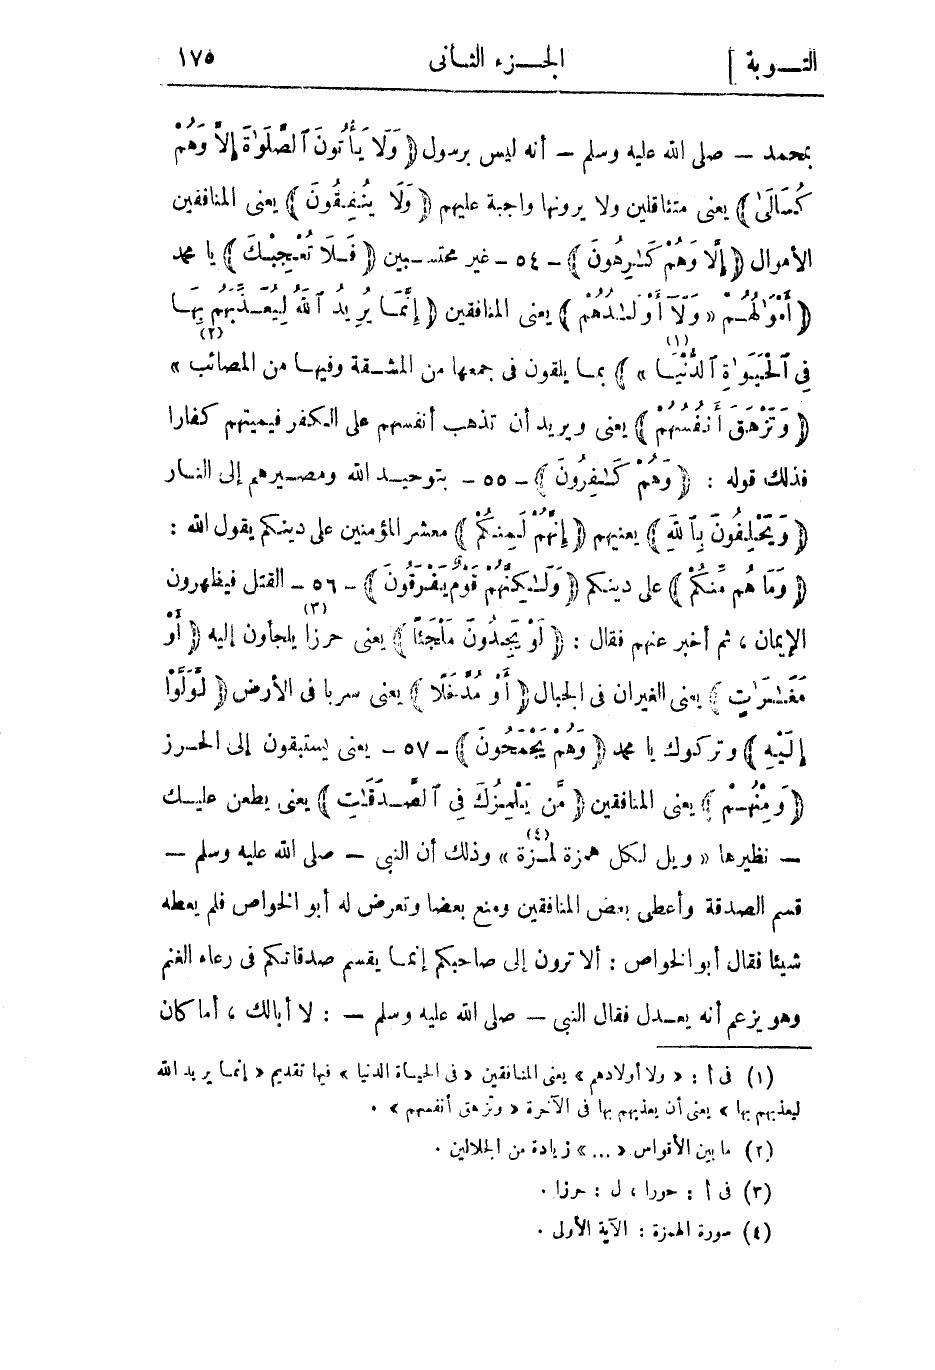 التوبة ] الجزء الثانى ١٧٥
بمحمد — صلى الله عليه وسلم — أنه ليس برسول ﴿ وَلَا يَأْتُونَ ٱلصَّلَوٰةَ إِلَّا وَهُمْ
كُسَالَىٰ ﴾ يعنى متثاقلين ولا يرونها واجبة عليهم ﴿ وَلَا يُنفِقُونَ ﴾ يعنى المنافقين
الأموال ﴿ إِلَّا وَهُمْ كَـٰرِهُونَ ﴾ - ٥٤ - غير محتسبين ﴿ فَلَا تُعْجِبْكَ ﴾ يا محمد
﴿ أَمْوَٰلُهُمْ « وَلَآ أَوْلَـٰدُهُمْ ﴾ يعنى المنافقين ﴿ إِنَّمَا يُرِيدُ ٱللَّهُ لِيُعَذِّبَهُم بِهَا
فِى ٱلْحَيَوٰةِ ٱلدُّنْيَا » (١) ﴾ بما يلقون فى جمعها من المشقة وفيها من المصائب » (٢)
﴿ وَتَزْهَقَ أَنفُسُهُمْ ﴾ يعنى ويريد أن تذهب أنفسهم على الكفر فيميتهم كفارا
فذلك قوله : ﴿ وَهُمْ كَـٰفِرُونَ ﴾ - ٥٥ - بتوحيد الله ومصيرهم إلى النار
﴿ وَيَحْلِفُونَ بِٱللَّهِ ﴾ يعنيهم ﴿ إِنَّهُمْ لَمِنكُمْ ﴾ معشر المؤمنين على دينكم يقول الله :
﴿ وَمَا هُم مِّنكُمْ ﴾ على دينكم ﴿ وَلَـٰكِنَّهُمْ قَوْمٌ يَفْرَقُونَ ﴾ - ٥٦ - القتل فيظهرون
الإيمان ، ثم أخبر عنهم فقال : ﴿ لَوْ يَجِدُونَ مَلْجَئًا ﴾ يعنى حرزا (٣) يلجأون إليه ﴿ أَوْ
مَغَـٰرَٰتٍ ﴾ يعنى الغيران فى الجبال ﴿ أَوْ مُدَّخَلًا ﴾ يعنى سربا فى الأرض ﴿ لَّوَلَّوْا
إِلَيْهِ ﴾ وتركوك يا محمد ﴿ وَهُمْ يَجْمَحُونَ ﴾ - ٥٧ - يعنى يستبقون إلى الحرز
﴿ وَمِنْهُم ﴾ يعنى المنافقين ﴿ مَّن يَلْمِزُكَ فِى ٱلصَّدَقَـٰتِ ﴾ يعنى يطعن عليك
— نظيرها « ويل لكل همزة لمزة » (٤) وذلك أن النبى — صلى الله عليه وسلم —
قسم الصدقة وأعطى بعض المنافقين ومنع بعضا وتعرض له أبو الخواص فلم يعطه
شيئا فقال أبو الخواص : ألا ترون إلى صاحبكم إنما يقسم صدقاتكم فى رعاء الغنم
وهو يزعم أنه يعدل فقال النبى — صلى الله عليه وسلم — : لا أبالك ، أما كان
(١) فى أ : « ولا أولادهم » يعنى المنافقين « فى الحياة الدنيا » فيها تقديم « إنما يريد الله
ليعذبهم بها » يعنى أن يعذبهم بها فى الآخرة « وتزهق أنفسهم » .
(٢) ما بين الأقواس « ... » زيادة من الجلالين .
(٣) فى أ : حورا ، ل : حرزا .
(٤) سورة الهمزة : الآية الأولى .